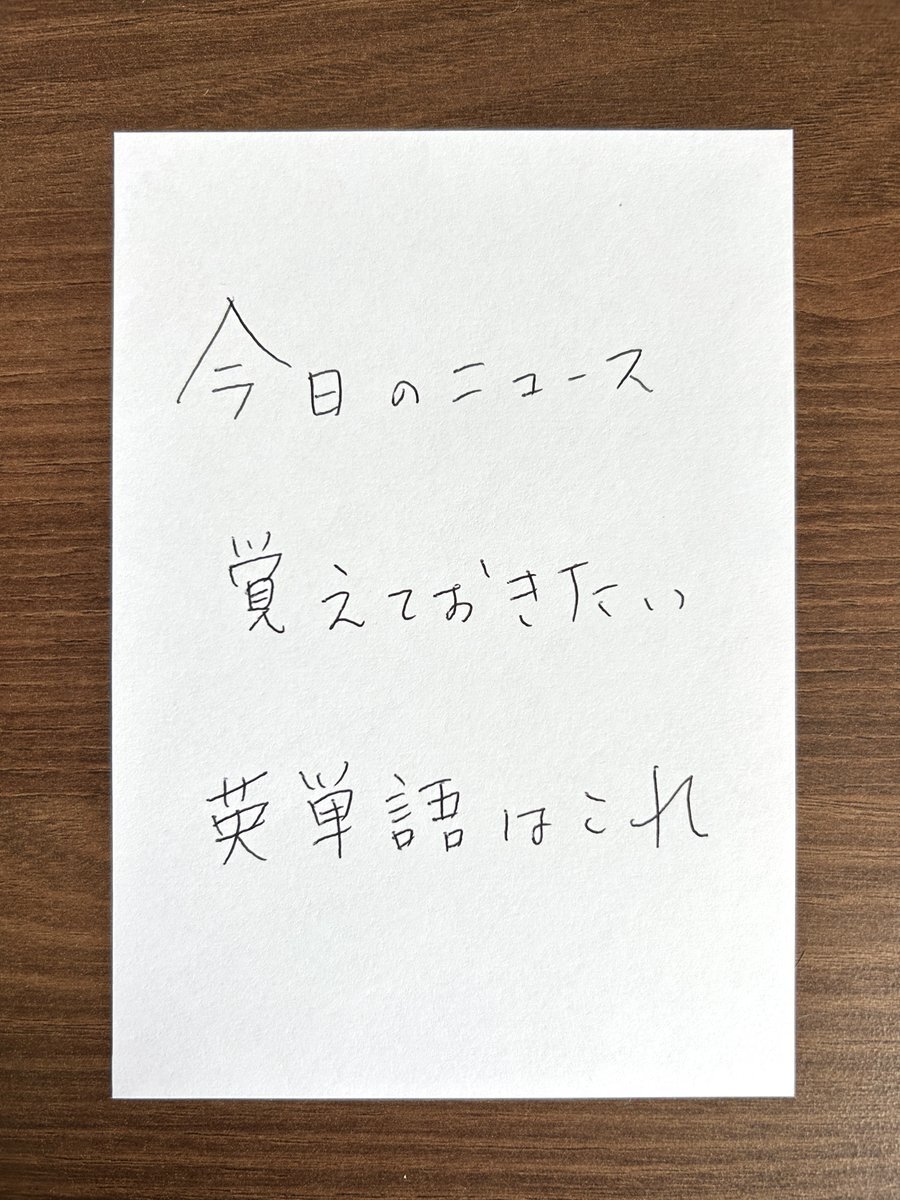 今日のニュース
覚えておきたい
英単語はこれ